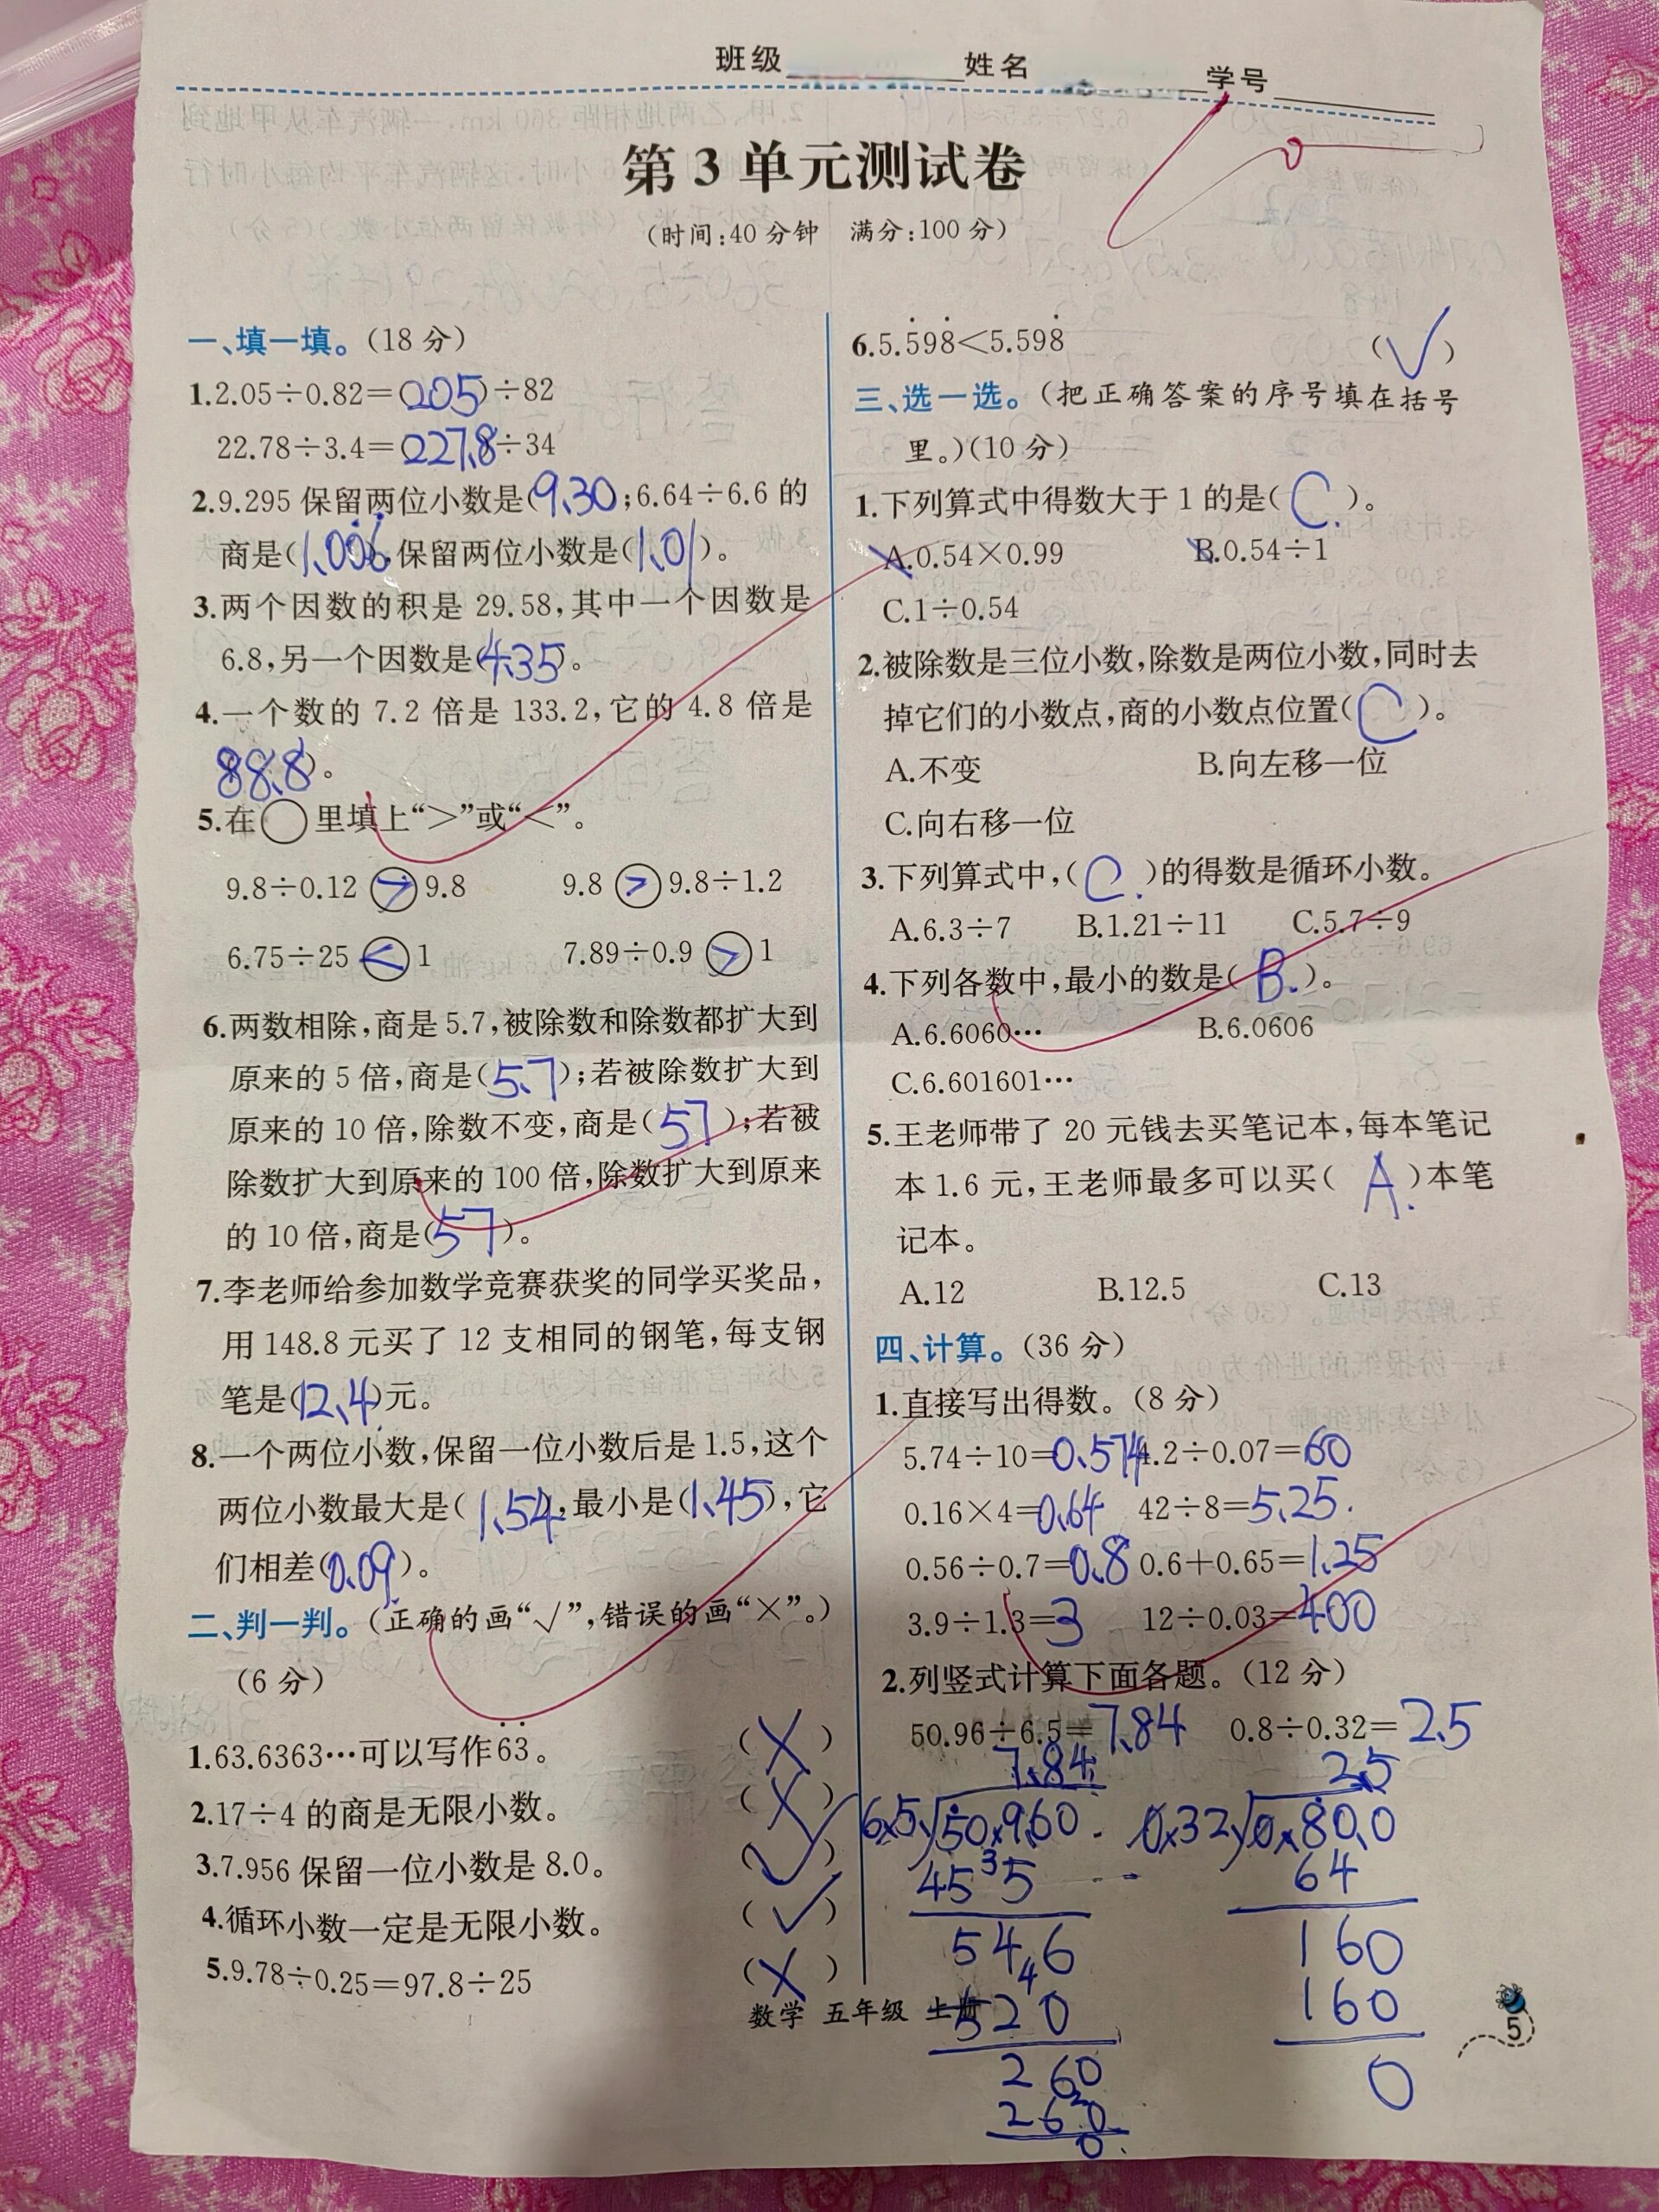 班级 姓名 学号
第3单元测试卷
(时间:40分钟 满分:100分)
一、填一填。(18分)
1.2.05÷0.82=(205)÷82
22.78÷3.4=(227.8)÷34
2.9.295保留两位小数是(9.30);6.64÷6.6的
商是(1.00̇6̇),保留两位小数是(1.01)。
3.两个因数的积是29.58,其中一个因数是
6.8,另一个因数是(4.35)。
4.一个数的7.2倍是133.2,它的4.8倍是
(88.8)。
5.在○里填上“>”或“<”。
9.8÷0.12>9.8 9.8>9.8÷1.2
6.75÷25<1 7.89÷0.9>1
6.两数相除,商是5.7,被除数和除数都扩大到
原来的5倍,商是(5.7);若被除数扩大到
原来的10倍,除数不变,商是(57);若被
除数扩大到原来的100倍,除数扩大到原来
的10倍,商是(57)。
7.李老师给参加数学竞赛获奖的同学买奖品,
用148.8元买了12支相同的钢笔,每支钢
笔是(12.4)元。
8.一个两位小数,保留一位小数后是1.5,这个
两位小数最大是(1.54),最小是(1.45),它
们相差(0.09)。
二、判一判。(正确的画“√”,错误的画“×”。)
(6分)
1.63.6363…可以写作6̇3̇。 (×)
2.17÷4的商是无限小数。 (×)
3.7.956保留一位小数是8.0。 (√)
4.循环小数一定是无限小数。 (√)
5.9.78÷0.25=97.8÷25 (×)
6.5.5̇98̇<5.598̇ (√)
三、选一选。(把正确答案的序号填在括号
里。)(10分)
1.下列算式中得数大于1的是(C.)。
A.0.54×0.99 B.0.54÷1
C.1÷0.54
2.被除数是三位小数,除数是两位小数,同时去
掉它们的小数点,商的小数点位置(C)。
A.不变 B.向左移一位
C.向右移一位
3.下列算式中,(C.)的得数是循环小数。
A.6.3÷7 B.1.21÷11 C.5.7÷9
4.下列各数中,最小的数是(B.)。
A.6.6060… B.6.0606
C.6.601601…
5.王老师带了20元钱去买笔记本,每本笔记
本1.6元,王老师最多可以买(A.)本笔
记本。
A.12 B.12.5 C.13
四、计算。(36分)
1.直接写出得数。(8分)
5.74÷10=0.574 4.2÷0.07=60
0.16×4=0.64 42÷8=5.25.
0.56÷0.7=0.8 0.6+0.65=1.25
3.9÷1.3=3 12÷0.03=400
2.列竖式计算下面各题。(12分)
50.96÷6.5=7.84 0.8÷0.32=2.5
7.84 2.5
6.5 50.960 0.32 0.80.0
455 64
546 160
520 160
260 0
260
0
数学 五年级 上册
5